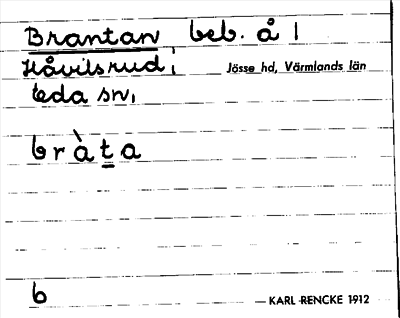 Brantan beb. å 1
Håvilsrud i Jösse hd, Värmlands län
Eda sn,
bràṯa
6
KARL RENCKE 1912